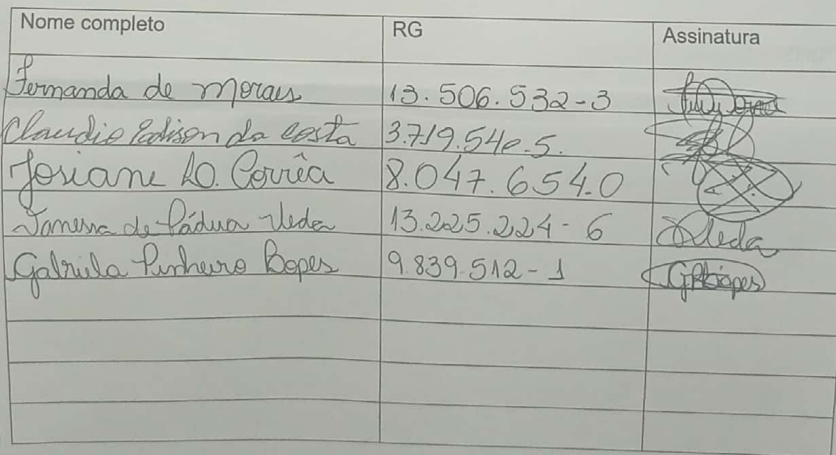 Nome completo RG Assinatura
Fernanda de Morais 13.506.532-3
Claudio Edison da Costa 3.719.540.5.
Josiane Corrêa 8.047.654.0
Vanessa de Pádua Ueda 13.225.224-6 Ueda
Gabriela Pinheiro Bopes 9.839.512-1